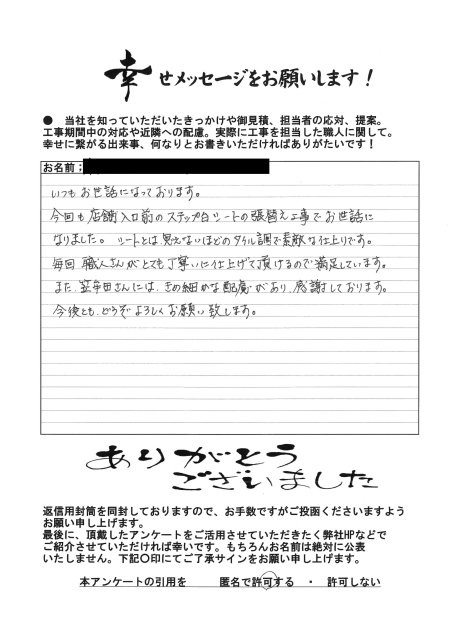 幸せメッセージをお願いします！
● 当社を知っていただいたきっかけや御見積、担当者の応対、提案。
工事期間中の対応や近隣への配慮。実際に工事を担当した職人に関して。
幸せに繋がる出来事、何なりとお書きいただければありがたいです！
お名前；
いつもお世話になっております。
今回も店舗入口前のステップ白シートの張替え工事でお世話に
なりました。シートとは見えないほどのタイル調で素敵な仕上りです。
毎回職人さんがとても丁寧に仕上げて頂けるので満足しています。
また、笠牟田さんには、きめ細かな配慮があり、感謝しております。
今後とも、どうぞよろしくお願い致します。
ありがとう
ございました
返信用封筒を同封しておりますので、お手数ですがご投函くださいますよう
お願い申し上げます。
最後に、頂戴したアンケートをご活用させていただきたく弊社HPなどで
ご紹介させていただければ幸いです。もちろんお名前は絶対に公表
いたしません。下記〇印にてご了承サインをお願い申し上げます。
本アンケートの引用を 匿名で許可する ・ 許可しない